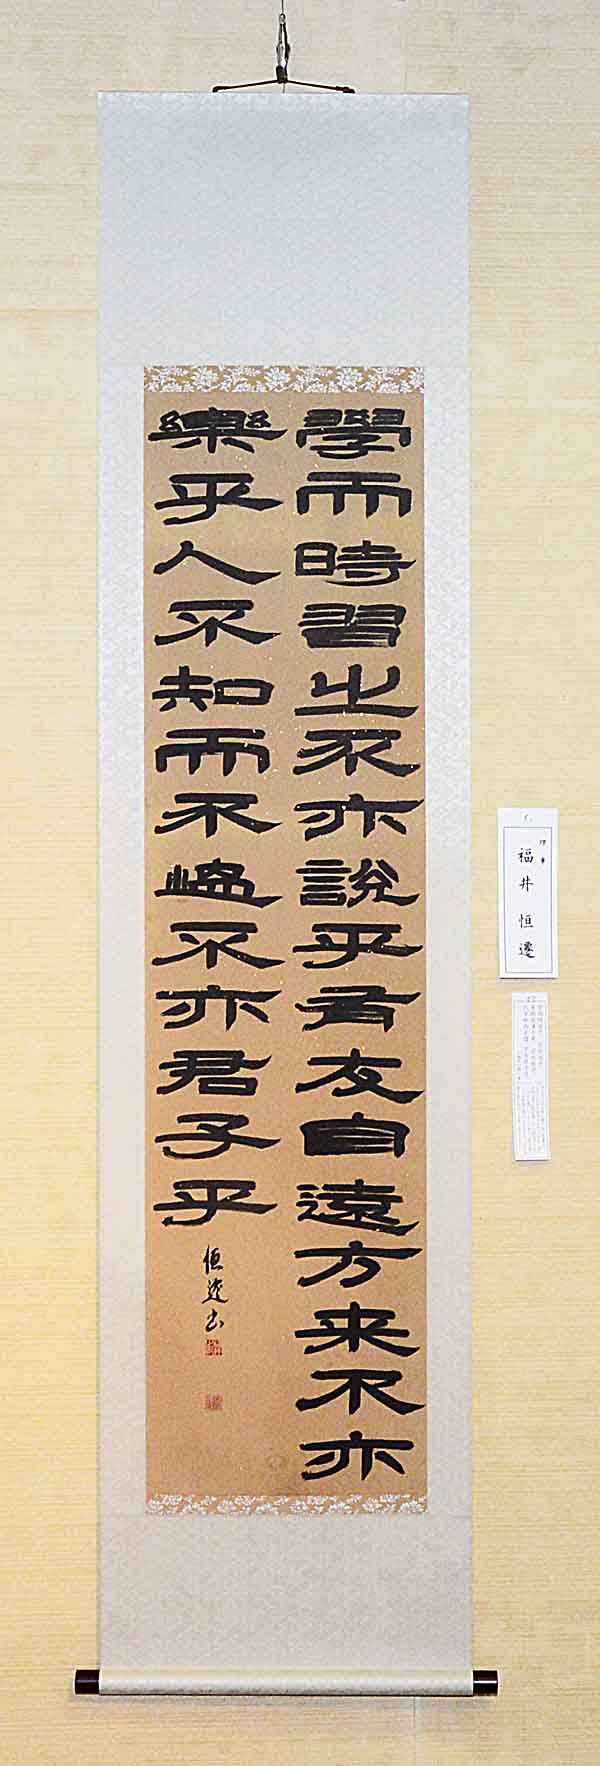 學而時習之不亦説乎有友自遠方来不亦
樂乎人不知而不慍不亦君子乎
恒遷書
理事
福井恒遷